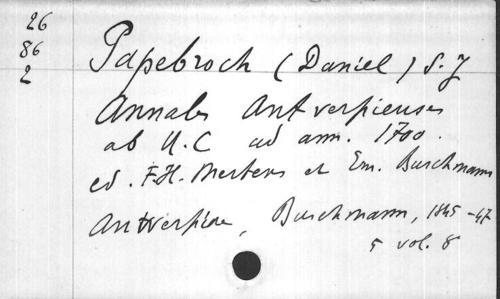 26
86
2
Papebroch (Daniel) S.J
Annales Antverpienses
ab U.C ad ann. 1700.
ed. F.H. Mertens et Em. Buschmann
Antverpiae, Buschmann, 1845-47
5 vol. 8